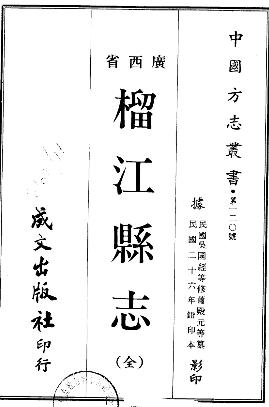 中國方志叢書·第一二〇號
據民國吳國經等修蕭殿元等纂
民國二十六年鉛印本影印
廣西省
榴江縣志(全)
成文出版社印行